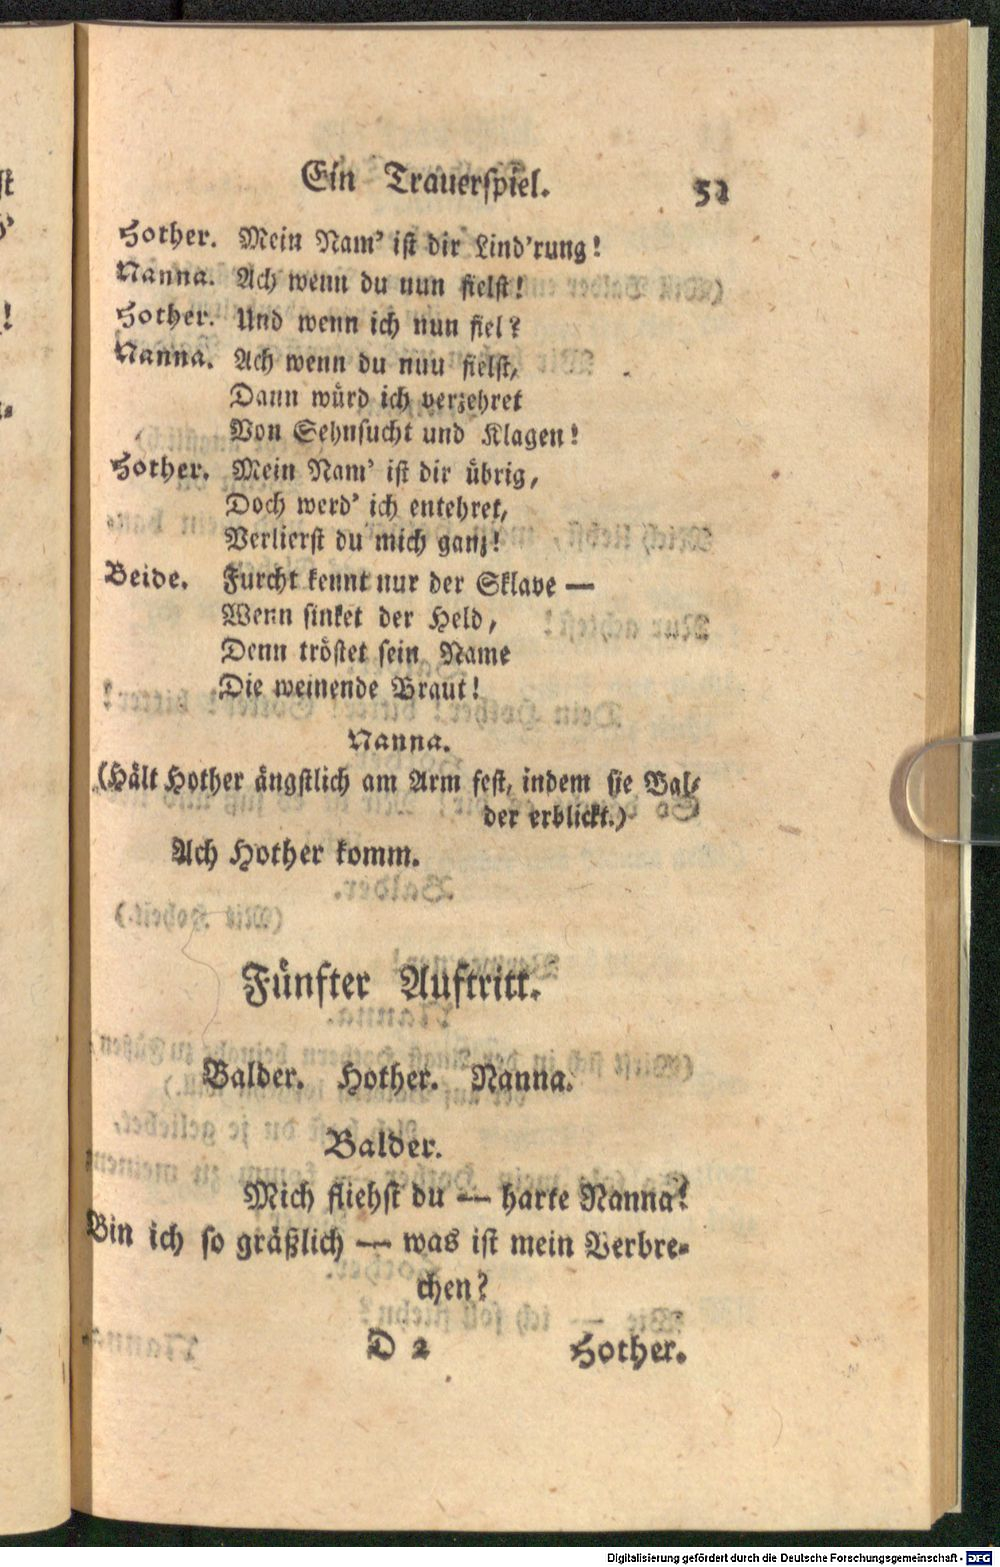 Ein Trauerspiel. 51
Hother. Mein Nam' ist dir Lind'rung!
Nanna. Ach wenn du nun fielst!
Hother. Und wenn ich nun fiel?
Nanna. Ach wenn du nun fielst,
Dann würd ich verzehret
Von Sehnsucht und Klagen!
Hother. Mein Nam' ist dir übrig,
Doch werd' ich entehret,
Verlierst du mich ganz!
Beide. Furcht kennt nur der Sklave —
Wenn sinket der Held,
Denn tröstet sein Name
Die weinende Braut!
Nanna.
(Hält Hother ängstlich am Arm fest, indem sie Bal-
der erblickt.)
Ach Hother komm.
Fünfter Auftritt.
Balder. Hother. Nanna.
Balder.
Mich fliehst du — harte Nanna!
Bin ich so gräßlich — was ist mein Verbre-
chen?
D 2 Hother.
Digitalisierung gefördert durch die Deutsche Forschungsgemeinschaft - DFG